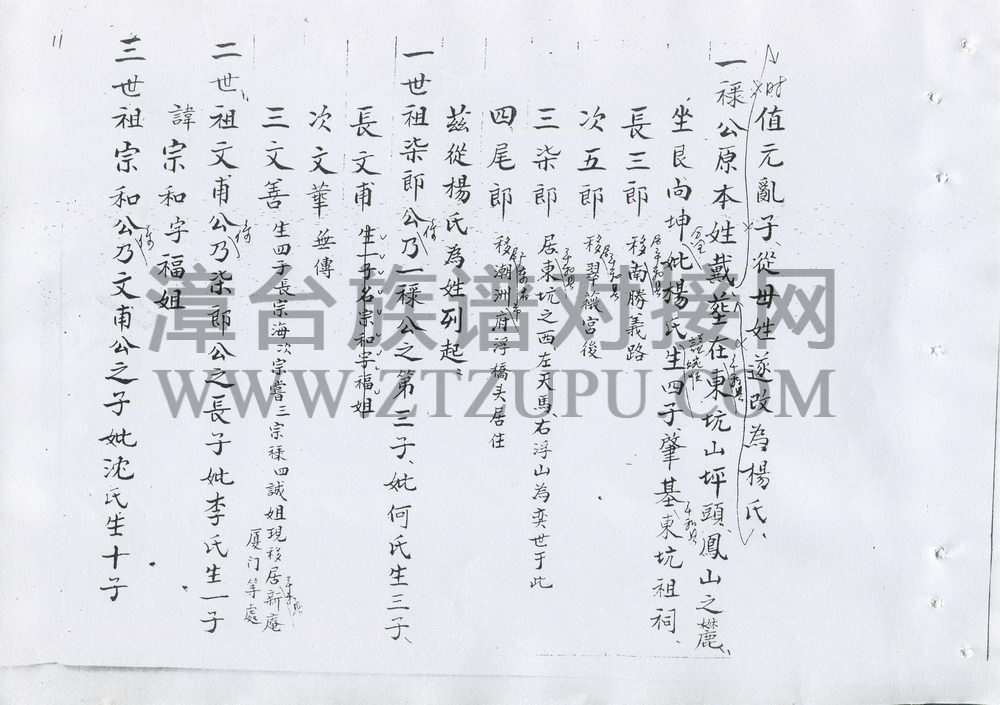 時值元亂子、從毌姓遂改為楊氏、
一祿公原本姓戴塟在東坑山坪頭、鳳山之麓
坐艮尚坤妣楊氏生四子、肇基東坑祖祠、
長三郎 移南勝義路
次五郎 移翠微宮後
三柒郎 居東坑之西左天馬、右浮山為奕世于此
四尾郎 移潮洲府浮橋头居住
茲從楊氏為姓列起、
一世祖柒郎公乃一祿公之第三子、妣何氏生三子、
長文甫 生一子名宗和字福姐
次文華 無傳
三文善 生四子長宗海次宗嘗三宗祿四誠姐現移居新庵
厦门等處
二世祖文甫公乃柒郎公之長子妣李氏生一子
諱宗和字福姐
三世祖宗和公乃文甫公之子妣沈氏生十子
11
漳台族谱对接网
WWW.ZTZUPU.COM